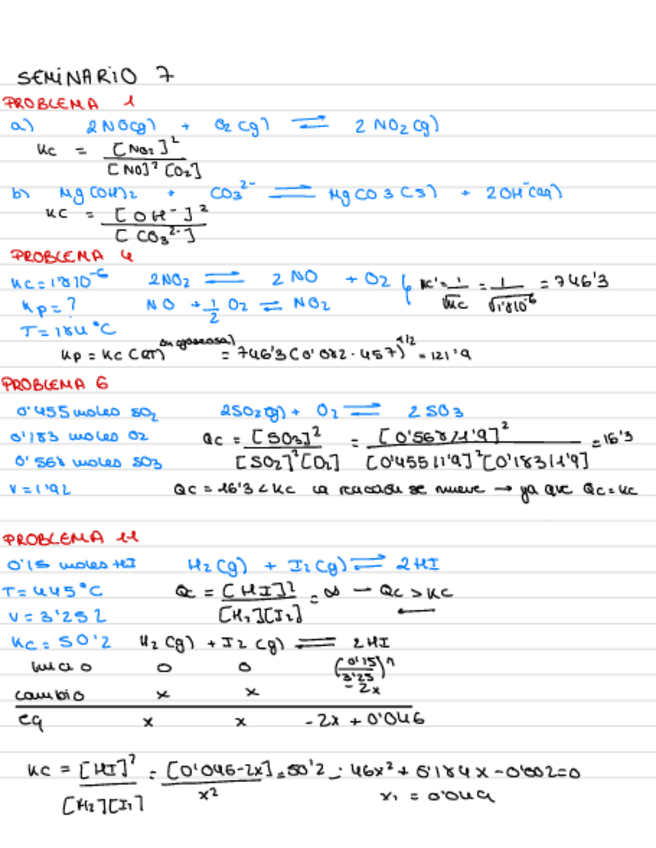 SEMINARIO 7
PROBLEMA 1
a) 2NO(g) + O2(g) ⇌ 2 NO2(g)
Kc = [NO2]^2 / [NO]^2 [O2]
b) Mg(OH)2 + CO3^2- ⇌ MgCO3(s) + 2OH^-(aq)
Kc = [OH^-]^2 / [CO3^2-]
PROBLEMA 4
Kc = 1'8·10^-6 2NO2 ⇌ 2 NO + O2 K' = 1/√Kc = 1/√1'8·10^-6 = 746'3
Kp = ? NO + 1/2 O2 ⇌ NO2
T = 184°C
Kp = Kc (RT) = 746'3 (0'082 · 457)^1/2 = 121'9
PROBLEMA 6
0'455 moles SO2 2SO2(g) + O2 ⇌ 2 SO3
0'183 moles O2 Qc = [SO3]^2 / [SO2]^2 [O2] = [0'568/1'9]^2 / [0'455/1'9]^2 [0'183/1'9] = 16'3
0'568 moles SO3
V = 1'9L Qc = 16'3 < Kc la reacción se mueve → ya que Qc = Kc
PROBLEMA 11
0'15 moles HI H2(g) + I2(g) ⇌ 2HI
T = 445°C Qc = [HI]^2 / [H2][I2] = ∞ → Qc > Kc
V = 3'25L ←
Kc = 50'2 H2(g) + I2(g) ⇌ 2HI
Inicio 0 0 (0'15/3'25)
cambio x x -2x
eq x x -2x + 0'046
Kc = [HI]^2 / [H2][I2] = [0'046-2x] / x^2 = 50'2 = 46x^2 + 0'184x - 0'002 = 0
x1 = 0'049